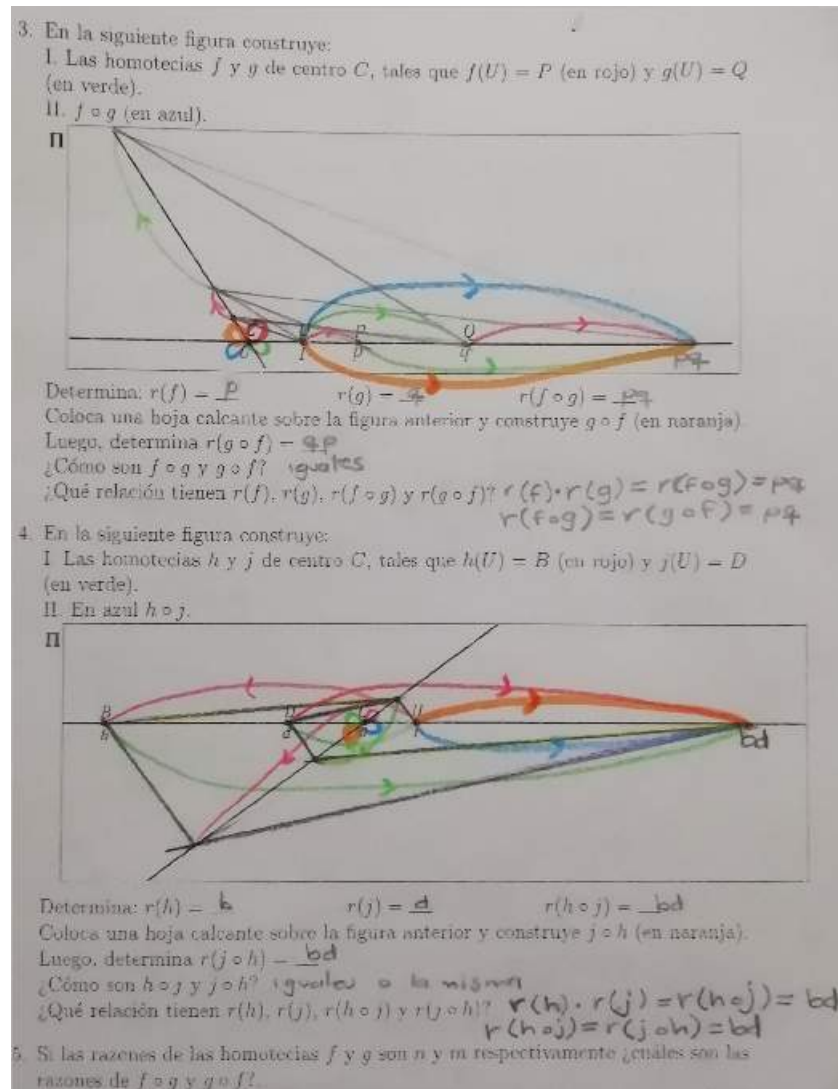 3. En la siguiente figura construye:
I. Las homotecias f y g de centro C, tales que f(U) = P (en rojo) y g(U) = Q
(en verde).
II. f ∘ g (en azul).
Π
U P Q
1 p q
pq
Determina: r(f) = p r(g) = q r(f ∘ g) = pq
Coloca una hoja calcante sobre la figura anterior y construye g ∘ f (en naranja).
Luego, determina r(g ∘ f) = qp
¿Cómo son f ∘ g y g ∘ f? iguales
¿Qué relación tienen r(f), r(g), r(f ∘ g) y r(g ∘ f)? r(f)·r(g) = r(f∘g) = pq
r(f∘g) = r(g∘f) = pq
4. En la siguiente figura construye:
I. Las homotecias h y j de centro C, tales que h(U) = B (en rojo) y j(U) = D
(en verde).
II. En azul h ∘ j.
Π
B D U
b d 1
bd
Determina: r(h) = b r(j) = d r(h ∘ j) = bd
Coloca una hoja calcante sobre la figura anterior y construye j ∘ h (en naranja).
Luego, determina r(j ∘ h) = bd
¿Cómo son h ∘ j y j ∘ h? iguales o la misma
¿Qué relación tienen r(h), r(j), r(h ∘ j) y r(j ∘ h)? r(h)·r(j) = r(h∘j) = bd
r(h∘j) = r(j∘h) = bd
5. Si las razones de las homotecias f y g son n y m respectivamente ¿cuáles son las
razones de f ∘ g y g ∘ f?